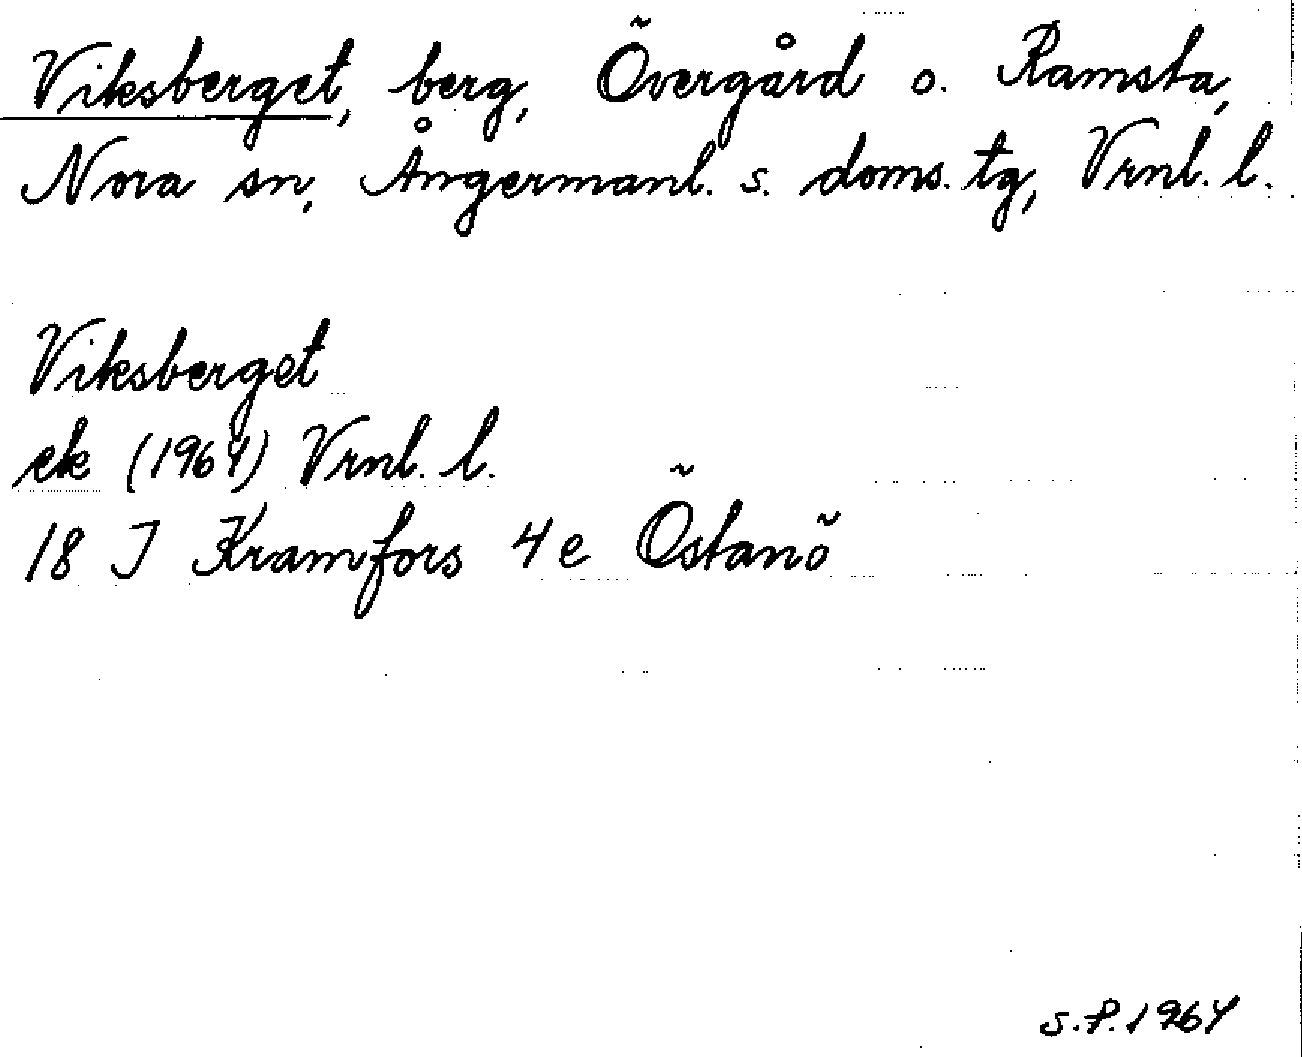 Viksberget, berg, Övergård o. Ramsta,
Nora sn, Ångermanl. s. doms. tg, Vrnl. l.
Viksberget
ek (1964) Vrnl. l.
18 I Kramfors 4e Östanö
S.P. 1964